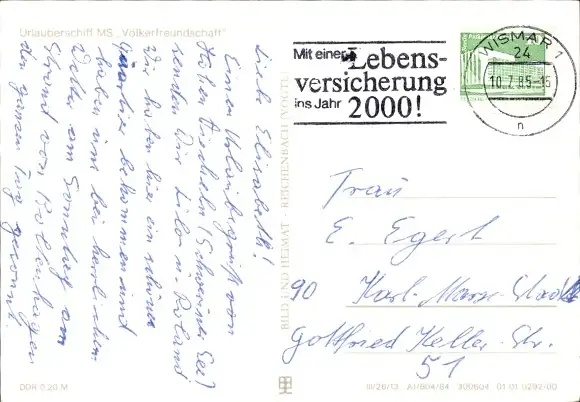 Urlauberschiff MS „Völkerfreundschaft"
Liebe Elisabeth!
Einen Urlaubsgruß von
Hohen Viecheln (Schweriner See)
senden Dir Lilo u. Roland
Wir haben hier ein schönes
Quartier bekommen und
haben uns bei herrlichem
Wetter am Sonntag am
Strand von Boltenhagen
den ganzen Tag gesonnt.
DDR 0,20 M
BILD UND HEIMAT · REICHENBACH (VOGTL)
III/26/13 A1/604/84 300604 01 01 0292/00
Mit einer Lebens-
versicherung
ins Jahr 2000!
WISMAR 1
24
10.7.85-15
n
Frau
E. Egert
90 Karl-Marx-Stadt
Gottfried Keller-Str.
51